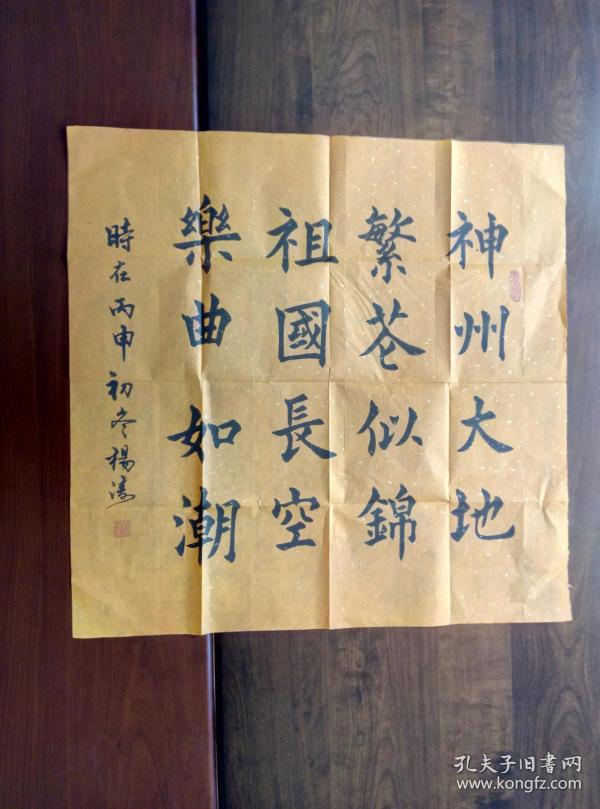 神州大地
繁花似錦
祖國長空
樂曲如潮
時在丙申初冬楊濤
孔夫子旧书网
www.kongfz.com